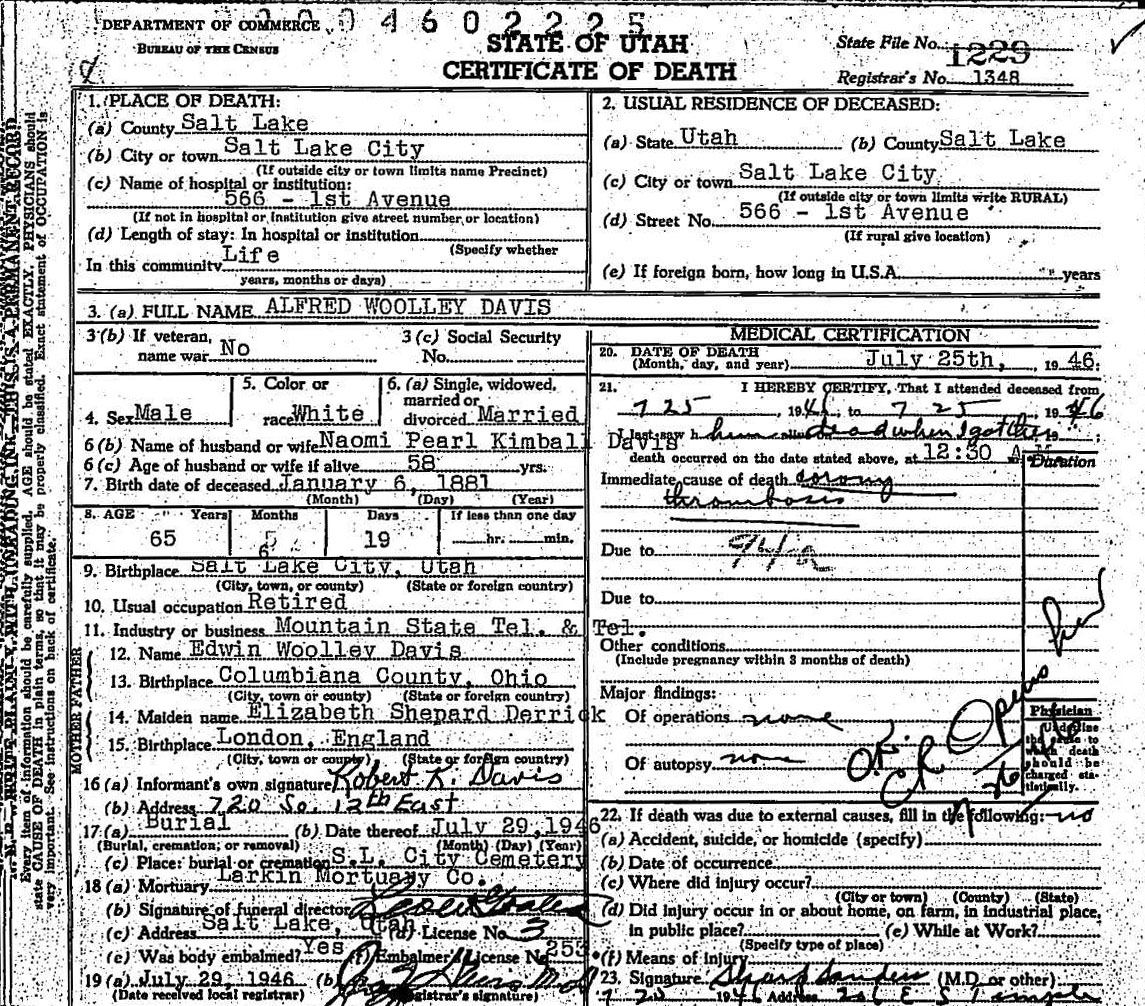 0004602225
DEPARTMENT OF COMMERCE
BUREAU OF THE CENSUS
STATE OF UTAH
CERTIFICATE OF DEATH
State File No. 1229
Registrar's No. 1348
1. PLACE OF DEATH:
(a) County Salt Lake
(b) City or town Salt Lake City
(If outside city or town limits name Precinct)
(c) Name of hospital or institution:
566 - 1st Avenue
(If not in hospital or institution give street number or location)
(d) Length of stay: In hospital or institution
(Specify whether
In this community Life
years, months or days)
2. USUAL RESIDENCE OF DECEASED:
(a) State Utah (b) County Salt Lake
(c) City or town Salt Lake City
(If outside city or town limits write RURAL)
(d) Street No. 566 - 1st Avenue
(If rural give location)
(e) If foreign born, how long in U.S.A. years
3. (a) FULL NAME ALFRED WOOLLEY DAVIS
3 (b) If veteran, name war No
3 (c) Social Security No.
4. Sex Male
5. Color or race White
6. (a) Single, widowed, married or divorced Married
6 (b) Name of husband or wife Naomi Pearl Kimball Davis
6 (c) Age of husband or wife if alive 58 yrs.
7. Birth date of deceased January 6, 1881
(Month) (Day) (Year)
8. AGE Years Months Days If less than one day
65 6 19 hr. min.
9. Birthplace Salt Lake City, Utah
(City, town, or county) (State or foreign country)
10. Usual occupation Retired
11. Industry or business Mountain State Tel. & Tel.
FATHER
12. Name Edwin Woolley Davis
13. Birthplace Columbiana County, Ohio
(City, town or county) (State or foreign country)
MOTHER
14. Maiden name Elizabeth Shepard Derrick
15. Birthplace London, England
(City, town or county) (State or foreign country)
16 (a) Informant's own signature Robert K. Davis
(b) Address 720 So. 12th East
17 (a) Burial (b) Date thereof July 29, 1946
(Burial, cremation, or removal) (Month) (Day) (Year)
(c) Place: burial or cremation S.L. City Cemetery
18 (a) Mortuary Larkin Mortuary Co.
(b) Signature of funeral director
(c) Address Salt Lake, Utah (d) License No. 3
(e) Was body embalmed? Yes (f) Embalmer's License No. 253
19 (a) July 29, 1946 (b)
(Date received local registrar) Registrar's signature)
MEDICAL CERTIFICATION
20. DATE OF DEATH
(Month, day, and year) July 25th, 1946.
21. I HEREBY CERTIFY, That I attended deceased from
7 25, 1946, to 7 25, 1946
I last saw him dead when I got there 19
death occurred on the date stated above, at 12:30 A
Duration
Immediate cause of death corony
thrombosis
Due to 94/a
Due to
Other conditions
(Include pregnancy within 3 months of death)
Major findings:
Of operations none
Of autopsy none
Physician
Underline the cause to which death should be charged statistically.
22. If death was due to external causes, fill in the following: no
(a) Accident, suicide, or homicide (specify)
(b) Date of occurrence
(c) Where did injury occur?
(City or town) (County) (State)
(d) Did injury occur in or about home, on farm, in industrial place,
in public place? (e) While at Work?
(Specify type of place)
(f) Means of injury
23. Signature (M.D. or other)
7 25 1946 Address
Every item of information should be carefully supplied. AGE should be stated EXACTLY. PHYSICIANS should
state CAUSE OF DEATH in plain terms, so that it may be properly classified. Exact statement of OCCUPATION is
very important. See instructions on back of certificate.